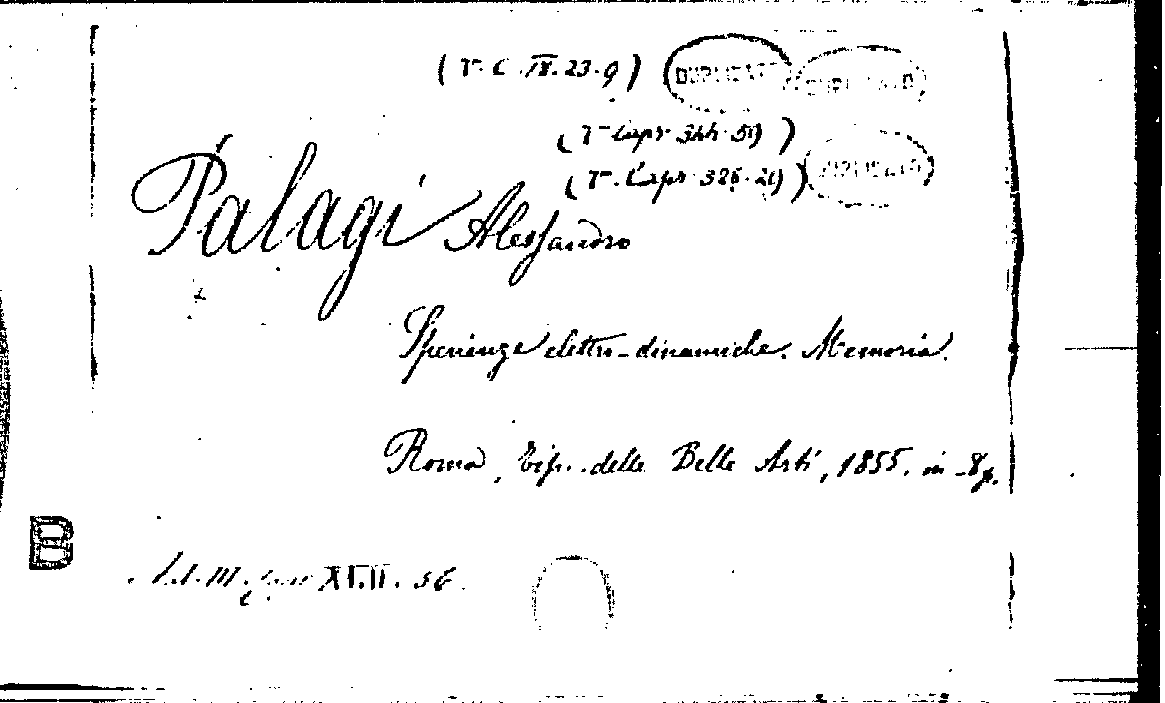 (V. C. IX. 23. 9) DUPLICATO DUPLICATO
(V. Capr. 344. 59)
(V. Capr. 326. 29) DUPLICATO
Palagi Alessandro
Sperienze elettro-dinamiche. Memoria.
Roma, Tip. delle Belle Arti, 1855. in 8°.
B
M. XI.II. 36.